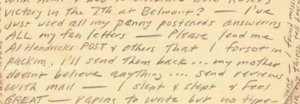 victory in the 7th at Belmont? — I've
just used all my penny postcards answering
ALL my fan letters — Please lend me
Al Hendricks POST & others that I forgot in
packing. I'll send them back... my mother
doesn't believe anything.... send reviews
with mail — I slept & slept & feel
GREAT — raring to write but no type-